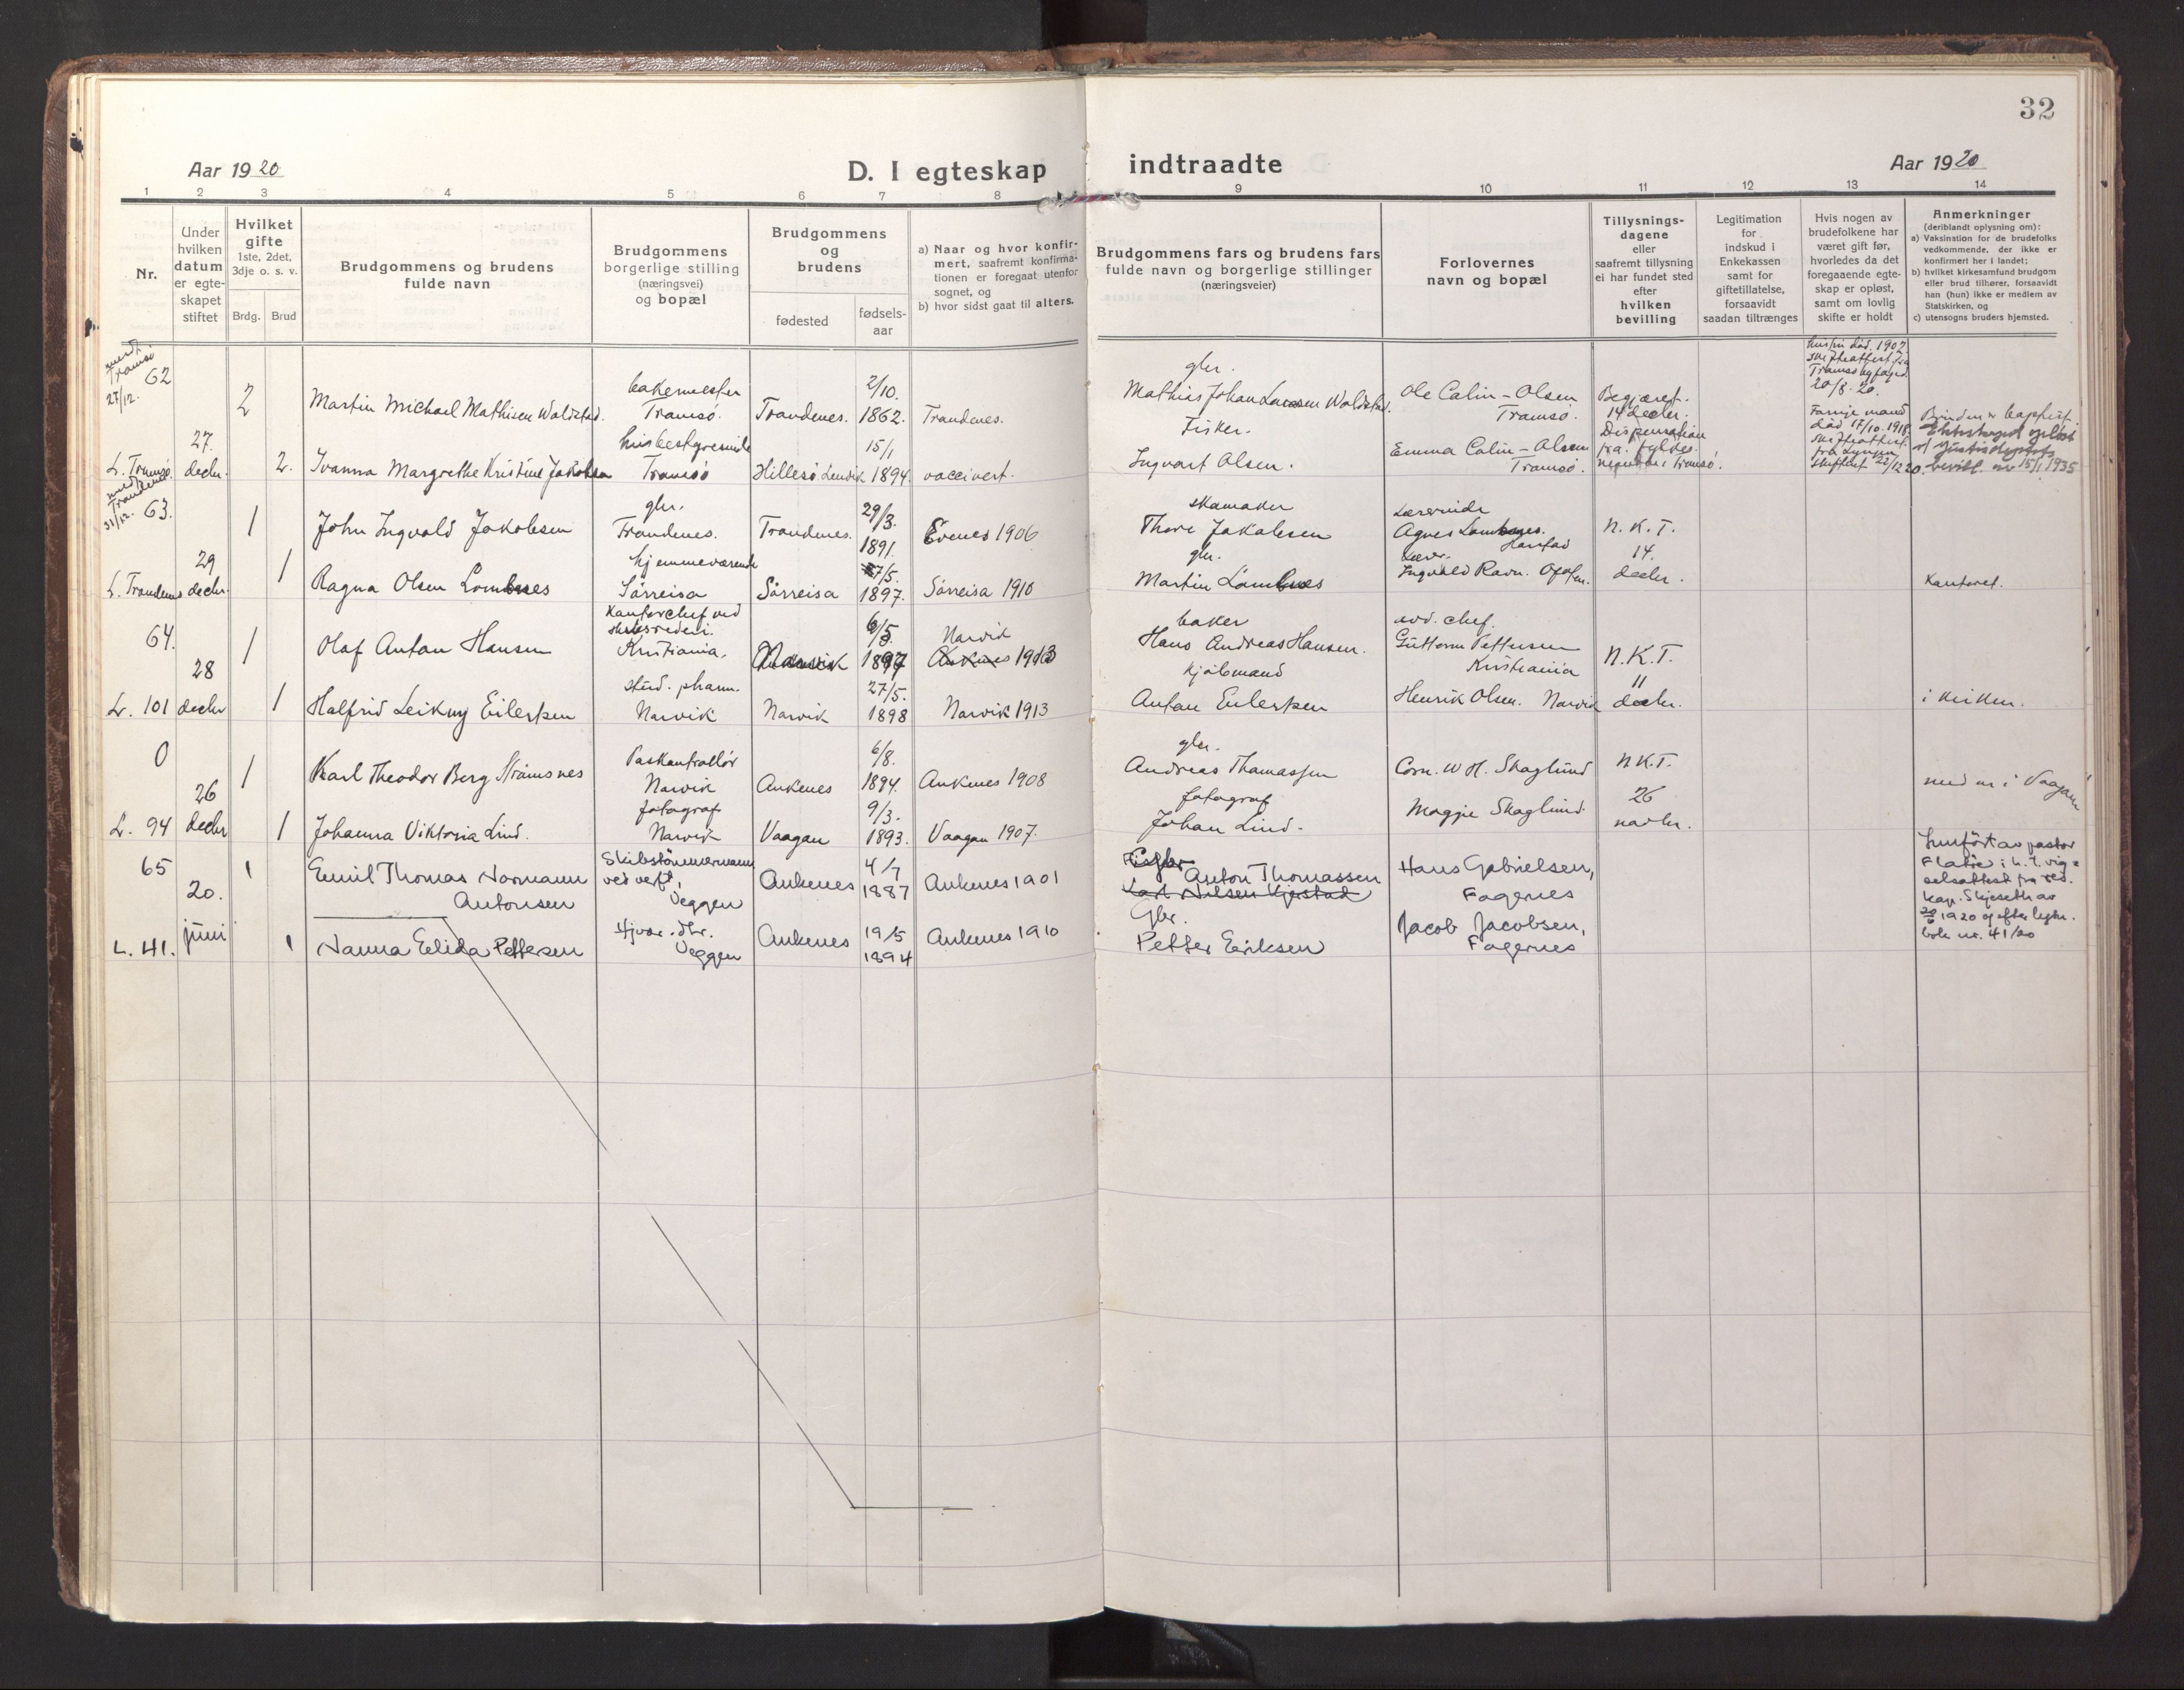 32
Aar 1920
D. I egteskap
indtraadte
Aar 1920
1 2 3 4 5 6 7 8 9 10 11 12 13 14
Nr.
Under
hvilken
datum
er egte-
skapet
stiftet
Hvilket
gifte
1ste, 2det,
3dje o. s. v.
Brdg. Brud
Brudgommens og brudens
fulde navn
Brudgommens
borgerlige stilling
(næringsvei)
og bopæl
Brudgommens
og
brudens
fødested
fødsels-
aar
a) Naar og hvor konfir-
mert, saafremt konfirma-
tionen er foregaat utenfor
sognet, og
b) hvor sidst gaat til alters.
Brudgommens fars og brudens fars
fulde navn og borgerlige stillinger
(næringsveier)
Forlovernes
navn og bopæl
Tillysnings-
dagene
eller
saafremt tillysning
ei har fundet sted
efter
hvilken
bevilling
Legitimation
for
indskud i
Enkekassen
samt for
giftetillatelse,
forsaavidt
saadan tiltrænges
Hvis nogen av
brudefolkene har
været gift før,
hvorledes da det
foregaaende egte-
skap er opløst,
samt om lovlig
skifte er holdt
Anmerkninger
(deriblandt oplysning om):
a) Vaksination for de brudefolks
vedkommende, der ikke er
konfirmert her i landet;
b) hvilket kirkesamfund brudgom
eller brud tilhører, forsaavidt
han (hun) ikke er medlem av
Statskirken, og
c) utensogns bruders hjemsted.
Tromsö
27/12.
62
2
Martin Michael Mathisen Woldstad.
bakermester
Tromsö.
Trondenes.
2/10.
1862.
Trondenes.
gbr.
Mathias Johan Larssen Woldstad.
Ole Calin-Olsen
Tromsö.
Begjæret.
14 decbr.
hustru död. 1902
skifteattest fra
Tromsö byfoged
20/8. 20.
L. Tromsö.
27.
decbr.
2.
Ivanna Margrethe Kristine Jakobsen
husbestyrerinde
Tromsö
Hillesö Lenvik
15/1
1894.
vaccinert.
Fisker.
Ingvart Olsen.
Emma Calin-Olsen
Tromsö.
Dispensation
fra fylkes-
Tromsö.
Forrige mand
död 17/10. 1918.
skifteattest
fra Lyngen
skifteret 22/12 20.
Bruden er baptist
Ekteskapet oplöst
v/ Justisdeptets
bevill. av 15/1 1935
Trondenes
31/12.
63.
1
John Ingvald Jakobsen
gbr.
Trondenes.
Trondenes.
29/3.
1891.
Evenes 1906
skomaker
Thore Jakobsen
Lærerinde
Agnes Lombnes.
Harstad
N. K. T.
L. Trondenes
29
decbr.
1
Ragna Olsen Lombnes
hjemmeværende
Sörreisa
Sörreisa
7/5.
1897.
Sörreisa 1910
gbr.
Martin Lombnes
Lærer.
Ingvald Ravn. Ofoten.
14.
decbr.
Kontoret.
64.
1
Olaf Anton Hansen
Kontorchef ved
skibsrederi.
Kristiania.
Narvik
6/5
1897
Narvik
Ankenes 1913
baker
Hans Andreas Hansen.
avd. chef.
Guttorm Pettersen
Kristiania
N.K.T.
L. 101
28
decbr
1
Halfrid Leikny Eilertsen
stud. pharm.
Narvik
Narvik
27/5.
1898
Narvik 1913
kjöbmand
Anton Eilertsen
Henrik Olsen. Narvik
11
decbr.
i kirken.
0
1
Karl Theodor Berg Strömsnes
Paskontrollör
Narvik
Ankenes
6/8.
1894.
Ankenes 1908
gbr.
Andreas Thomassen
Corn. W H. Skoglund
N K.T.
L. 94
26
decbr
1
Johanna Viktoria Lind.
fotograf
Narvik
Vaagan
9/3.
1893.
Vaagan 1907.
fotograf
Johan Lind.
Magje Skoglund
26
novbr.
med nr i Vaagan
65
1
Emil Thomas Normann
Antonsen
Skibstömmermann
ved verft,
Veggen
Ankenes
4/7
1887
Ankenes 1901
Anton Thomassen
Karl Nilsen Kjerstad
Hans Gabrielsen,
Fagernes
L. 41.
20.
juni
1
Nanna Eelida Pettersen
Hjvær. dtr.
Veggen
Ankenes
19/5
1894
Ankenes 1910
Gbr.
Petter Eriksen
Jacob Jacobsen,
Fagernes
Innfört av pastor
Flatöe i h. t. vig-
selsattest fra res.
kap. Skjeseth av
20/6 1920 og efter lysn.
bok nr. 41/20